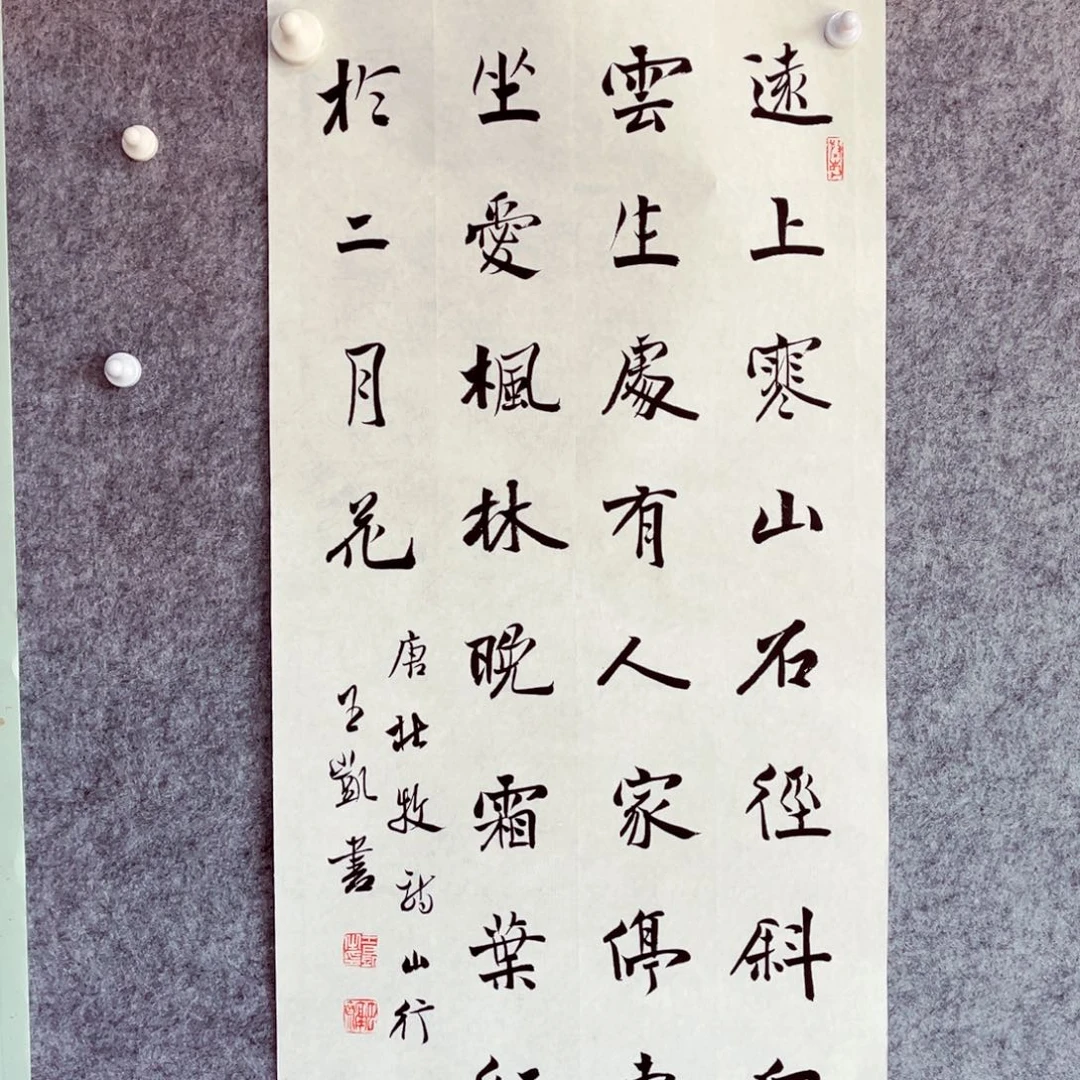 遠上寒山石徑斜
雲生處有人家停
坐愛楓林晚霜葉
於二月花
唐杜牧詩山行
王凱書